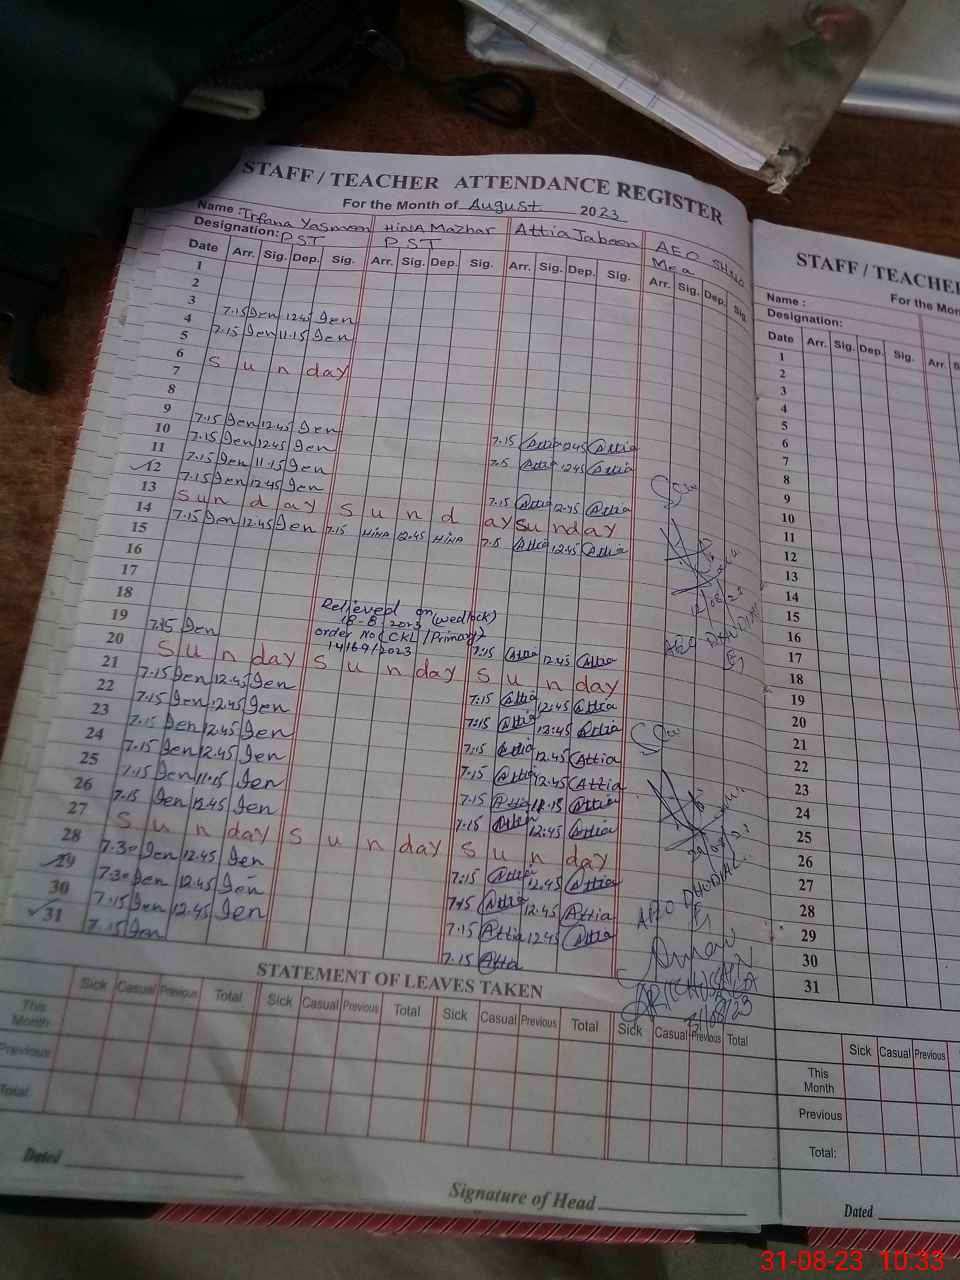 STAFF / TEACHER ATTENDANCE REGISTER
For the Month of August 2023
Name : Irfana Yasmeen HINA Mazhar Attia Jabeen AEO
Designation: PST PST
Date Arr. Sig. Dep. Sig. Arr. Sig. Dep. Sig. Arr. Sig. Dep. Sig. Arr. Sig. Dep. Sig.
1
2
3
4 7.15 Ien 12.45 Ien
5 7.15 Ien 11.15 Ien
6 S u n day
7
8
9
10 7.15 Ien 12.45 Ien
11 7.15 Ien 12.45 Ien 7.15 Attia 12.45 Attia
12 7.15 Ien 11.15 Ien 7.15 Attia 12.45 Attia
13 7.15 Ien 12.45 Ien
14 Sun d ay S u n d ay 7.15 Attia 12.45 Attia Sunday
15 7.15 Ien 12.45 Ien 7.15 HINA 12.45 HINA 7.15 Attia 12.45 Attia
16
17
18
Relieved on (wedlock)
18-8-2023
order No (CKL/Primary)
14169/2023
19 7.15 Ien 7:15 Attia 12.45 Attia
20 S u n day S u n day S u n day
21 7.15 Ien 12.45 Ien 7:15 Attia 12.45 Attia
22 7.15 Ien 12.45 Ien 7:15 Attia 12.45 Attia
23 7.15 Ien 12.45 Ien 7:15 Attia 12.45 Attia
24 7.15 Ien 12.45 Ien 7.15 Attia 12.45 Attia
25 7.15 Ien 11.15 Ien 7.15 Attia 11.15 Attia
26 7.15 Ien 12.45 Ien 7.15 Attia 12.45 Attia
27 S u n day S u n day S u n day
28 7.30 Ien 12.45 Ien 7:15 Attia 12.45 Attia
29 7.30 Ien 12.45 Ien 7.15 Attia 12.45 Attia
30 7.15 Ien 12.45 Ien 7.15 Attia 12.45 Attia
31 7.15 Ien 7.15 Attia
AEO DHUDIAL
AEO DHUDIAL
31/08/23
STATEMENT OF LEAVES TAKEN
Sick Casual Previous Total Sick Casual Previous Total Sick Casual Previous Total Sick Casual Previous Total
This Month
Previous
Total:
Dated
Signature of Head
STAFF / TEACHE
For the Mon
Name :
Designation:
Date Arr. Sig. Dep. Sig. Arr.
1
2
3
4
5
6
7
8
9
10
11
12
13
14
15
16
17
18
19
20
21
22
23
24
25
26
27
28
29
30
31
Sick Casual Previous
This Month
Previous
Total:
Dated
31-08-23 10:33